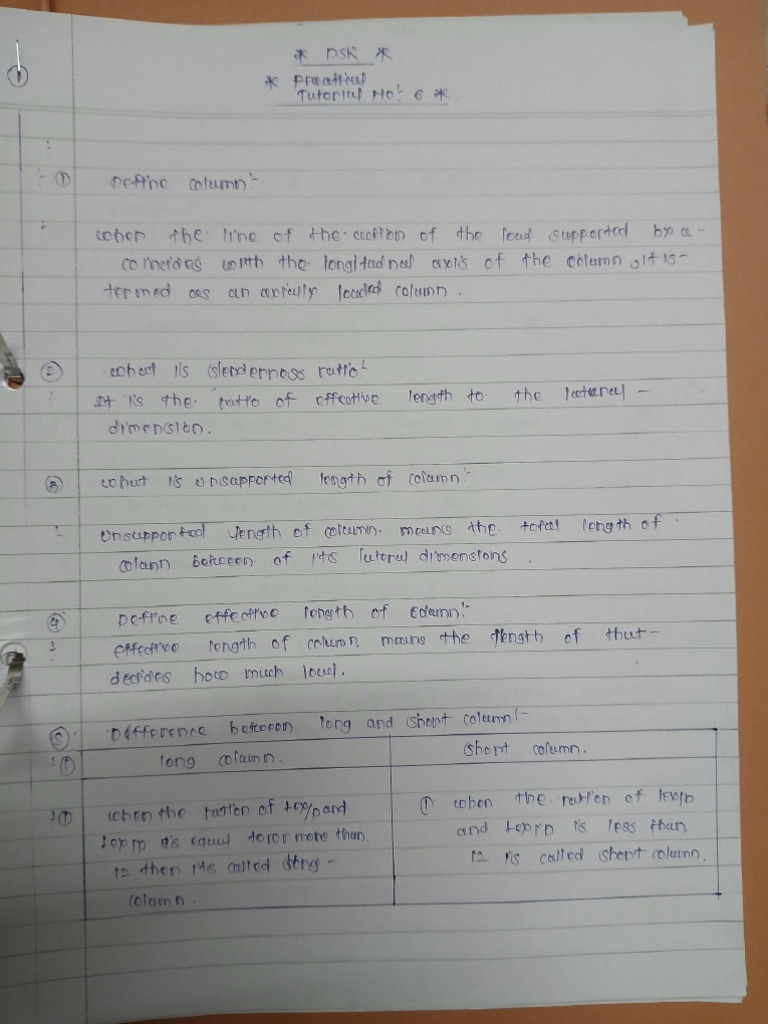 * DSR *
* Practical
Tutorial No:- 6 *
① Define column:-
when the line of the action of the load supported by a -
coincides with the longitudnal axis of the column, it is -
termed as an axially loaded column.
② what is slenderness ratio:-
It is the ratio of effective length to the lateral -
dimension.
③ what is unsupported length of column:-
Unsupported length of column means the total length of
column between of its lateral dimensions.
④ Define effective length of column:-
effective length of column means the length of that -
decides how much load.
⑤ Difference between long and short column:-
long column.
short column.
① when the ration of lex/D and
① when the ration of lex/D
is equal to or more than
and is less than
12 then its called long -
12 is called short column.
column.